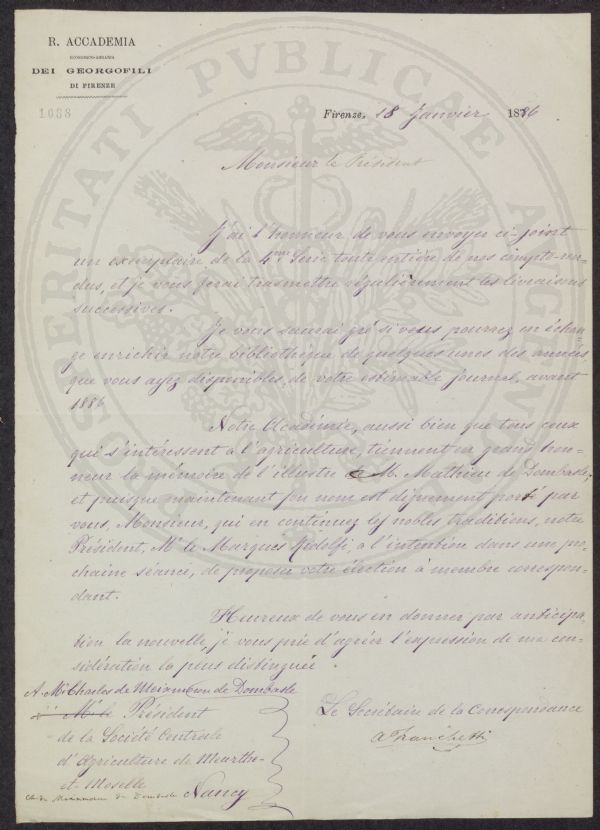 R. ACCADEMIA
ECONOMICO-AGRARIA
DEI GEORGOFILI
DI FIRENZE
1088
Firenze, 18 Janvier 1886
PROSPERITATI PVBLICAE AVGENDAE
Monsieur le Président
J'ai l'honneur de vous envoyer ci-joint
un exemplaire de la 4me Serie toute entière de nos compte-ren-
dus, et je vous ferai trasmettre régulièrement les livraisons
successives.
Je vous saurai gré si vous pourrez en échan
ge enrichir notre bibliothèque de quelques unes des années
que vous ayez disponibles, de votre estimable journal, avant
1886
Notre Académie, aussi bien que tous ceux
qui s'intéressent à l'agriculture, tiennent en grand hon-
neur la mémoire de l'illustre M. Mathieu de Dombasle,
et puisque maintenant son nom est dignement porté par
vous, Monsieur, qui en continuez les nobles traditions, notre
Président, Mr le Marques Ridolfi, a l'intention dans une pro-
chaine séance, de proposer votre élection à membre correspon-
dant.
Heureux de vous en donner par anticipa
tion la nouvelle, je vous prie d'agréer l'expression de ma con-
sidération la plus distinguée.
A. Mr Charles de Meixmoron de Dombasle
Mr le Président
de la Société Centrale
d'Agriculture de Meurthe-
et-Moselle
Nancy
Ch. de Meixmoron de Dombasle
Le Secrétaire de la Correspondance
A Franchetti